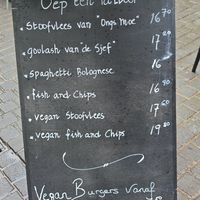 Oep een
• Stoofvlees van "Ons Moe" 16 70
• goulash van de Sjef 17 20
• Spaghetti Bolognese 16
• fish and Chips 16 90
• vegan Stoofvlees 17 60
• vegan fish and Chips 19 80
Vegan Burgers vanaf